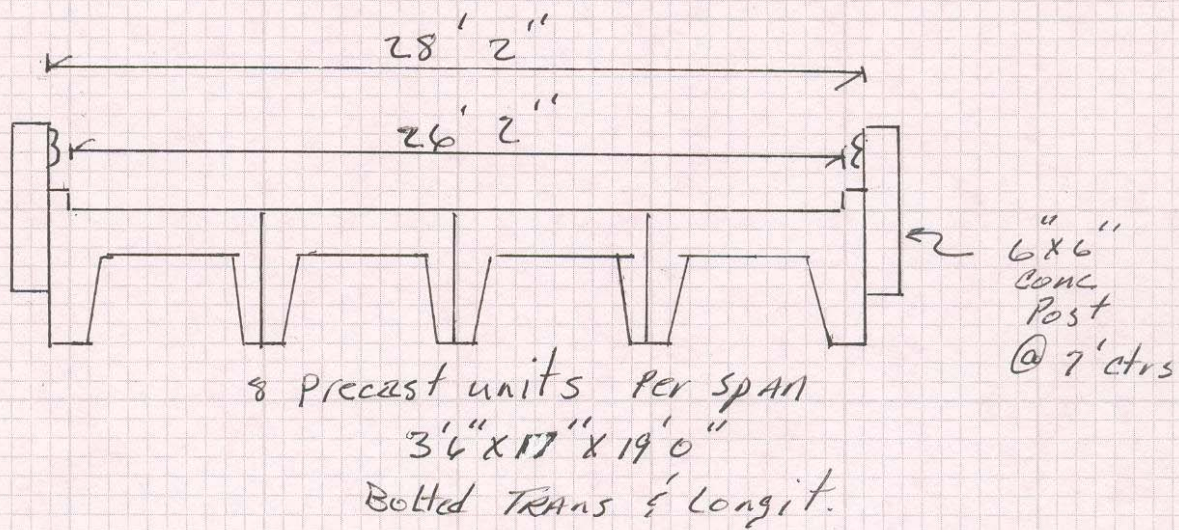 28' 2"
26' 2"
6" x 6"
conc
Post
@ 7' ctrs
8 precast units Per SpAn
3'6" x 17" x 19'0"
Bolted TRAns & Longit.